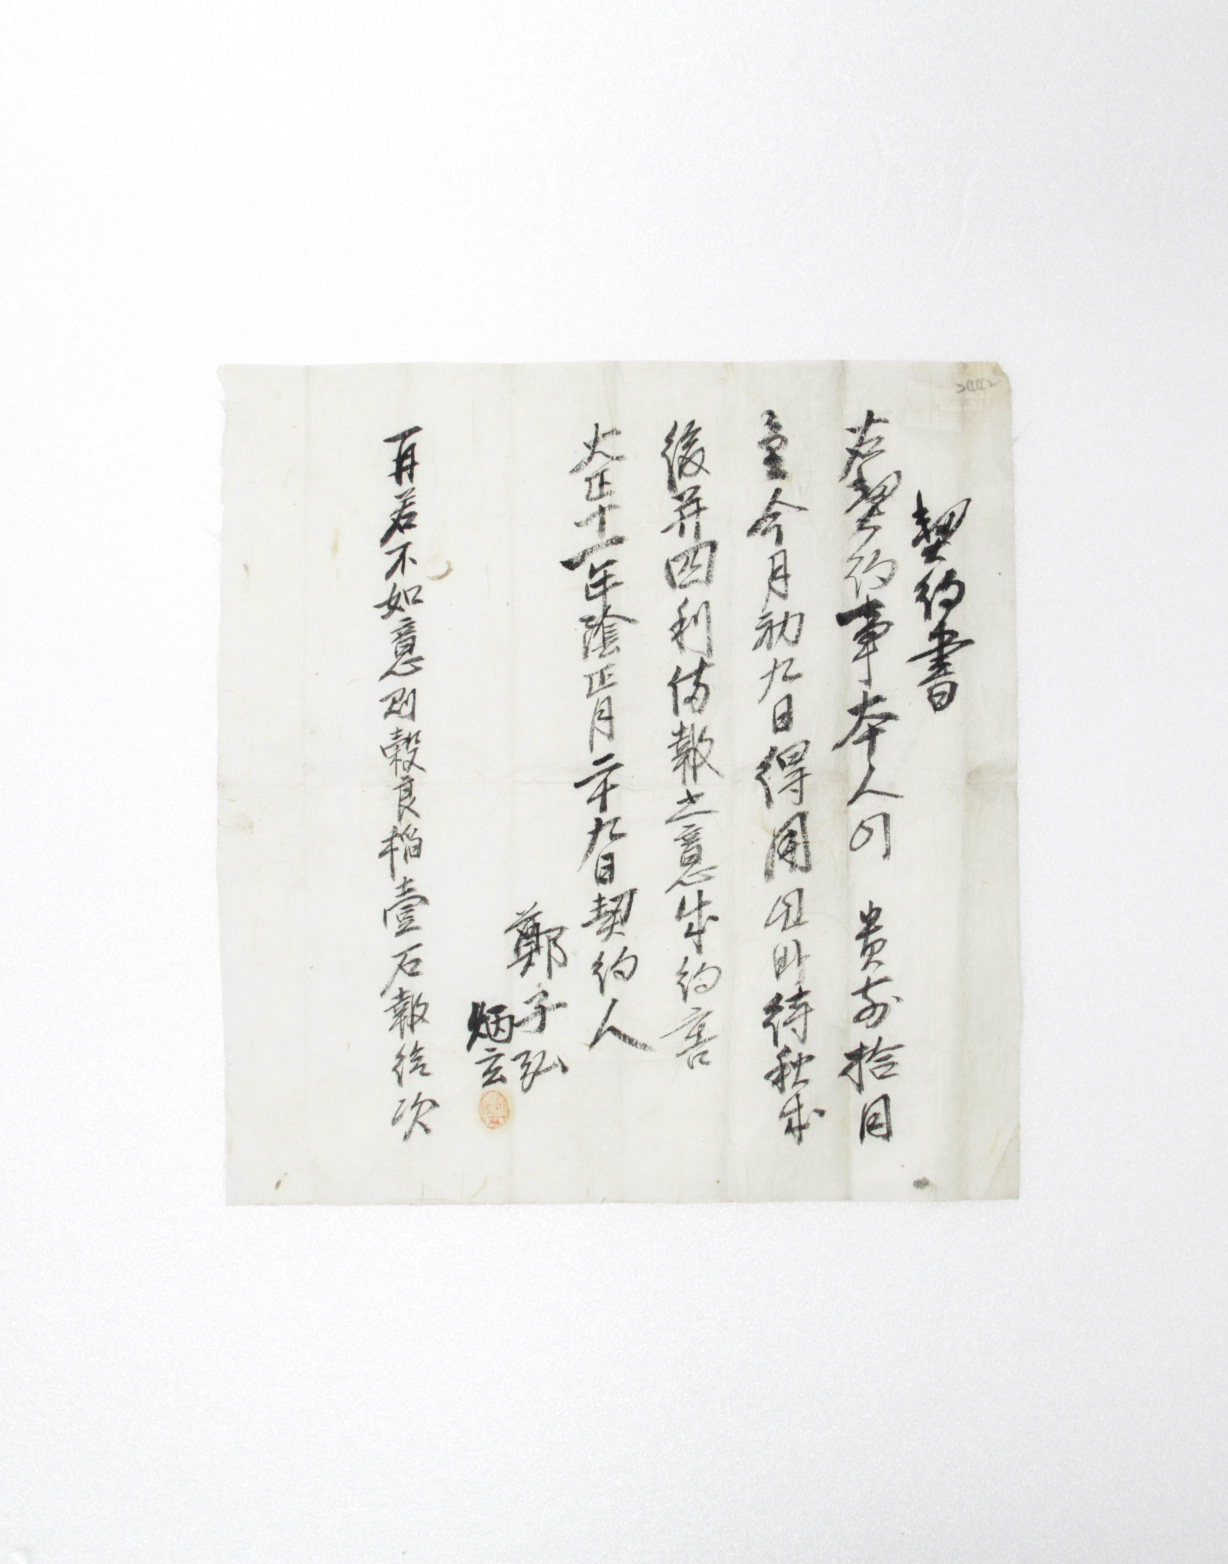 契約書
右契約事本人이 貴前拾円
를今月初九日得用인바待秋成
後并四利備報之意成約書
大正十一年陰正月二十九日契約人
鄭子弘
炳玄
再若不如意則穀良稻壹石報給次
2442